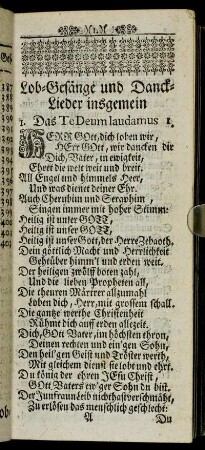 N.I.N
Lob-Gesänge und Danck-
Lieder insgemein
1. Das Te Deum laudamus 1.
HERR GOtt, dich loben wir,
HErr GOtt, wir dancken dir
Dich, Vater, in ewigkeit,
Ehret die welt weit und breit,
All Engel und himmels Heer,
Und was dienet deiner Ehr.
Auch Cherubin und Seraphim,
Singen immer mit hoher Stimm:
Heilig ist unser GOTT,
Heilig ist unser GOTT,
Heilig ist unser Gott, der HErre Zebaoth.
Dein göttlich Macht und Herrlichkeit
Geht über himm'l und erden weit.
Der heiligen zwölff boten zahl,
Und die lieben Propheten all,
Die theuren Märtrer allzumahl
Loben dich, Herr, mit grossem schall.
Die gantze werthe Christenheit
Rühmt dich auff erden allezeit.
Dich, GOtt Vater, im höchsten thron,
Deinen rechten und ein'gen Sohn,
Den heil'gen Geist und Tröster werth,
Mit gleichem dienst sie lobt und ehrt.
Du könig der ehren JEsu Christ,
GOtt Vaters ew'ger Sohn du bist.
Der Jungfraun Leib nicht hast verschmäht,
Zu erlösen das menschlich geschlecht:
A Du